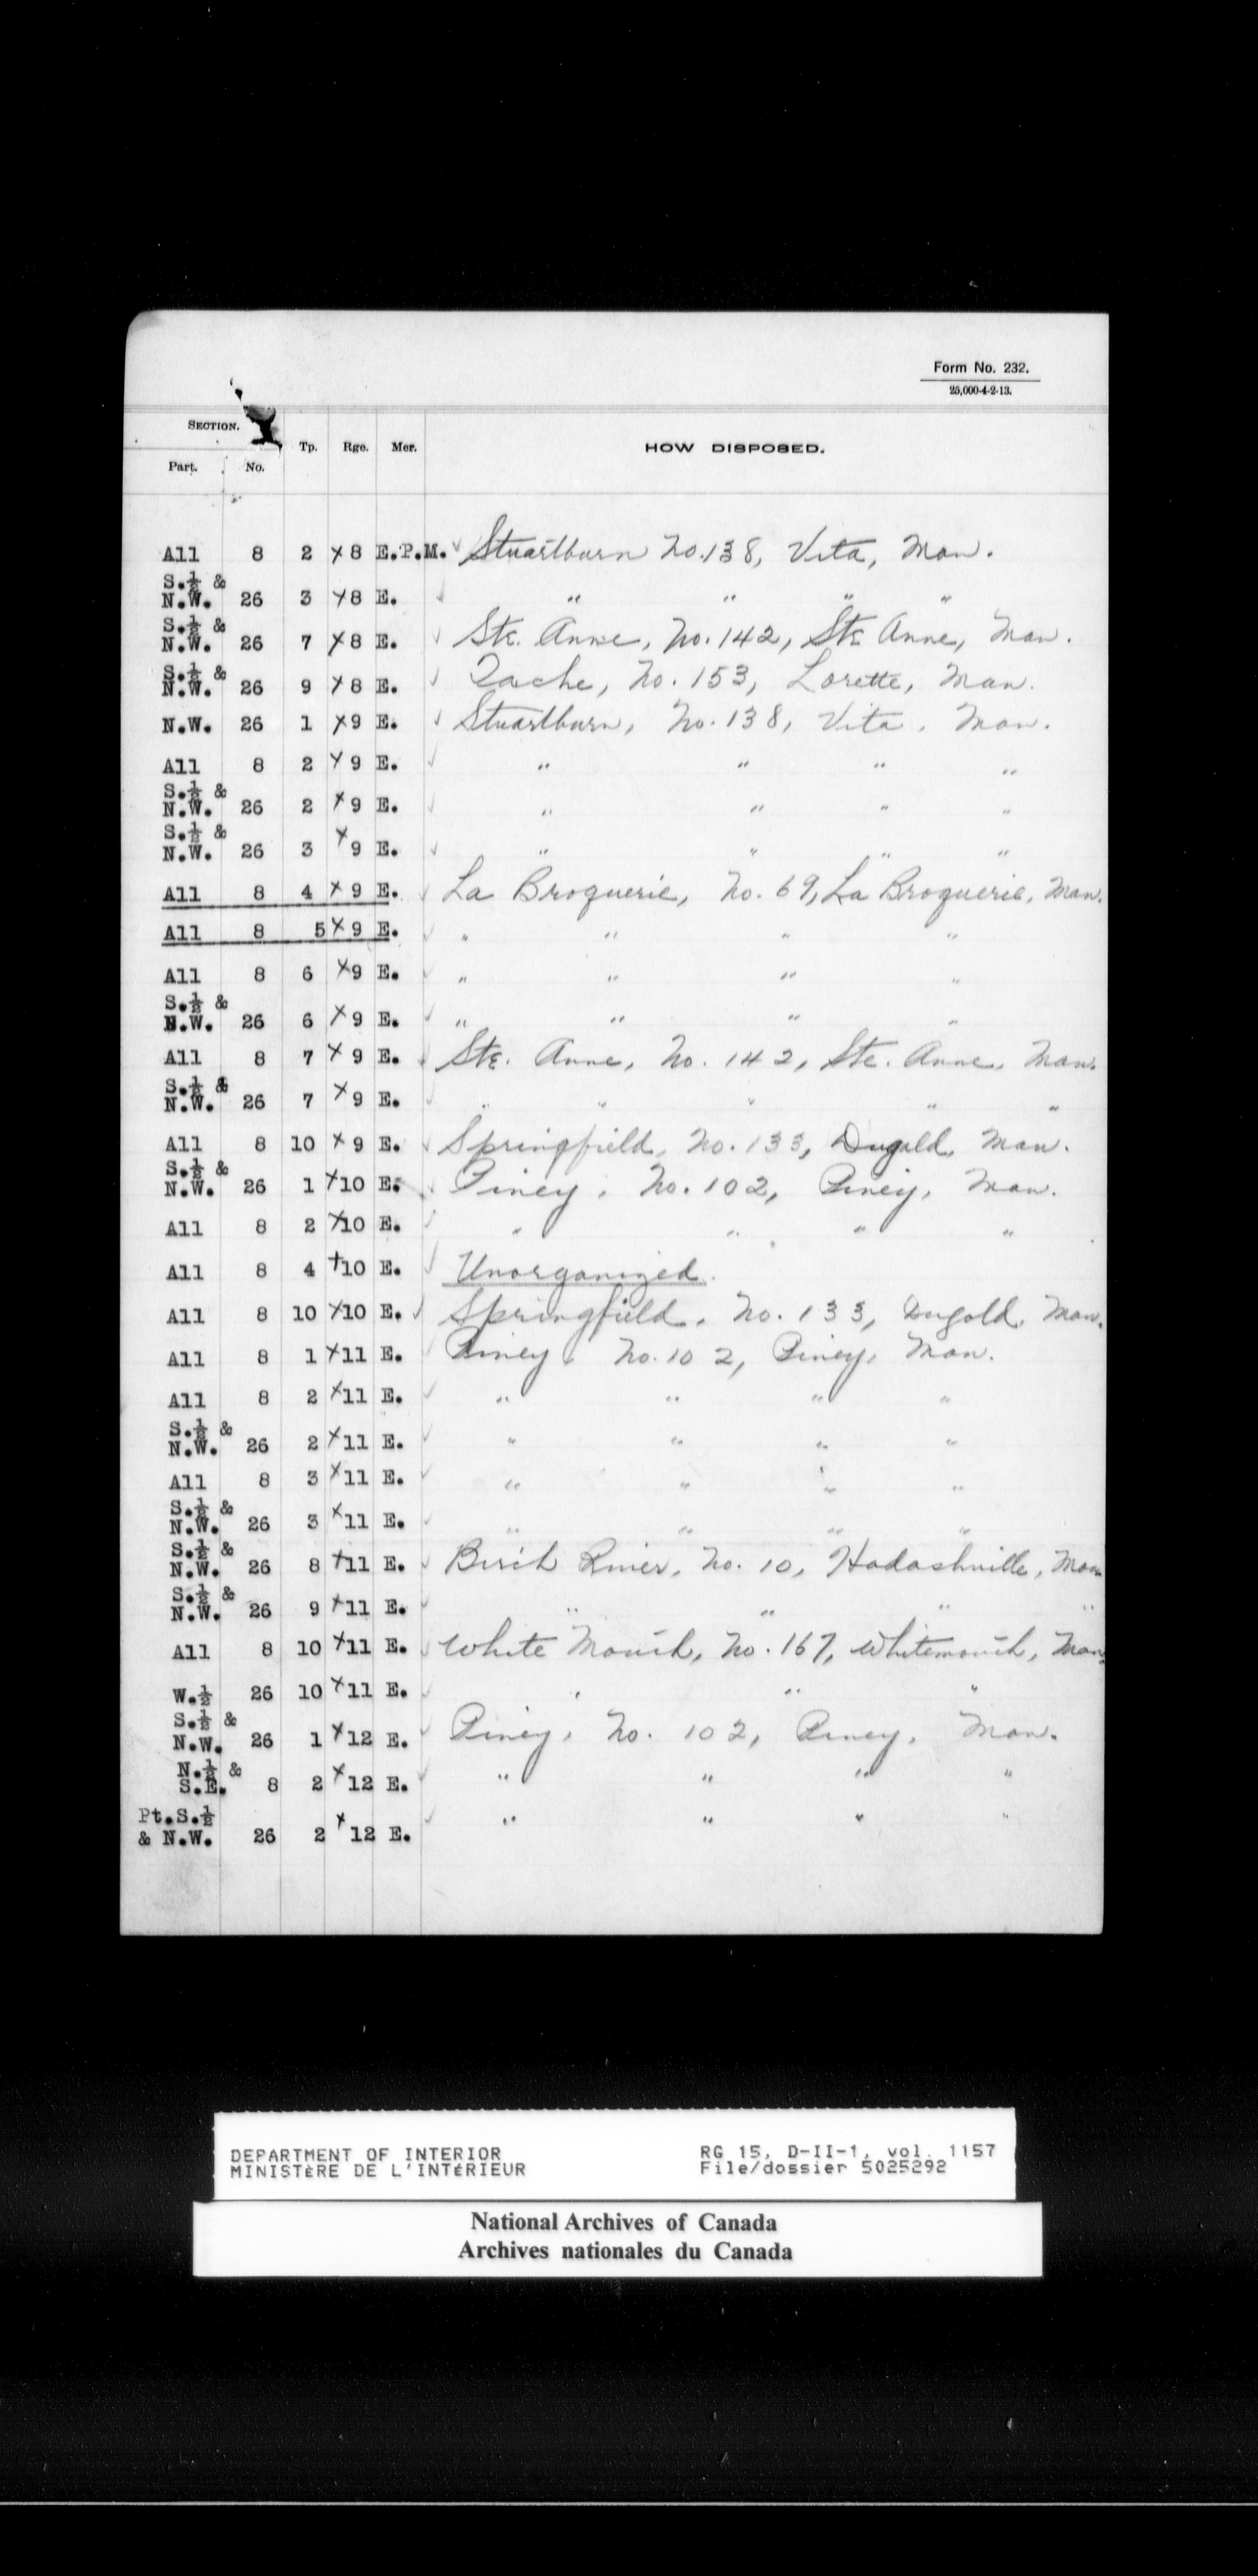 Form No. 232.
25,000-4-2-13.
SECTION. Tp. Rge. Mer. HOW DISPOSED.
Part. No.
All 8 2 x 8 E.P.M. ✓ Stuartburn No. 138, Vita, Man.
S.½ &
N.W. 26 3 x 8 E. ✓ " " " "
S.½ &
N.W. 26 7 x 8 E. ✓ Ste. Anne, No. 142, Ste Anne, Man.
S.½ &
N.W. 26 9 x 8 E. ✓ Tache, No. 153, Lorette, Man.
N.W. 26 1 x 9 E. ✓ Stuartburn, No. 138, Vita, Man.
All 8 2 x 9 E. ✓ " " " "
S.½ &
N.W. 26 2 x 9 E. ✓ " " " "
S.½ &
N.W. 26 3 x 9 E. ✓ " " " "
All 8 4 x 9 E. ✓ La Broquerie, No. 69, La Broquerie, Man.
All 8 5 x 9 E. ✓ " " " "
All 8 6 x 9 E. ✓ " " " "
S.½ &
N.W. 26 6 x 9 E. ✓ " " " "
All 8 7 x 9 E. ✓ Ste. Anne, No. 142, Ste. Anne, Man.
S.½ &
N.W. 26 7 x 9 E. ✓ " " " " "
All 8 10 x 9 E. ✓ Springfield, No. 133, Dugald, Man.
S.½ &
N.W. 26 1 x 10 E. ✓ Piney, No. 102, Piney, Man.
All 8 2 x 10 E. ✓ " " " "
All 8 4 x 10 E. ✓ Unorganized.
All 8 10 x 10 E. ✓ Springfield, No. 133, Dugald, Man.
All 8 1 x 11 E. ✓ Piney, No. 102, Piney, Man.
All 8 2 x 11 E. ✓ " " " "
S.½ &
N.W. 26 2 x 11 E. ✓ " " " "
All 8 3 x 11 E. ✓ " " " "
S.½ &
N.W. 26 3 x 11 E. ✓ " " " "
S.½ &
N.W. 26 8 x 11 E. ✓ Birch River, No. 10, Hadashville, Man
S.½ &
N.W. 26 9 x 11 E. ✓ " " " "
All 8 10 x 11 E. ✓ White Mouth, No. 167, Whitemouth, Man.
W.½ 26 10 x 11 E. ✓ " " "
S.½ &
N.W. 26 1 x 12 E. ✓ Piney, No. 102, Piney, Man.
N.½ &
S.E. 8 2 x 12 E. ✓ " " " "
Pt.S.½
& N.W. 26 2 x 12 E. ✓ " " " "
DEPARTMENT OF INTERIOR RG 15, D-II-1, vol. 1157
MINISTÈRE DE L'INTÉRIEUR File/dossier 5025292
National Archives of Canada
Archives nationales du Canada